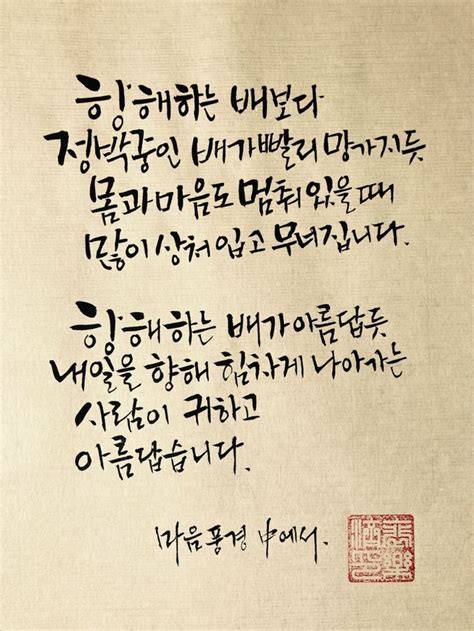 항해하는 배보다
정박중인 배가 빨리 망가지듯
몸과 마음도 멈춰 있을 때
많이 상처 입고 무너집니다.
항해하는 배가 아름답듯
내일을 향해 힘차게 나아가는
사람이 귀하고
아름답습니다.
마음풍경 中에서.